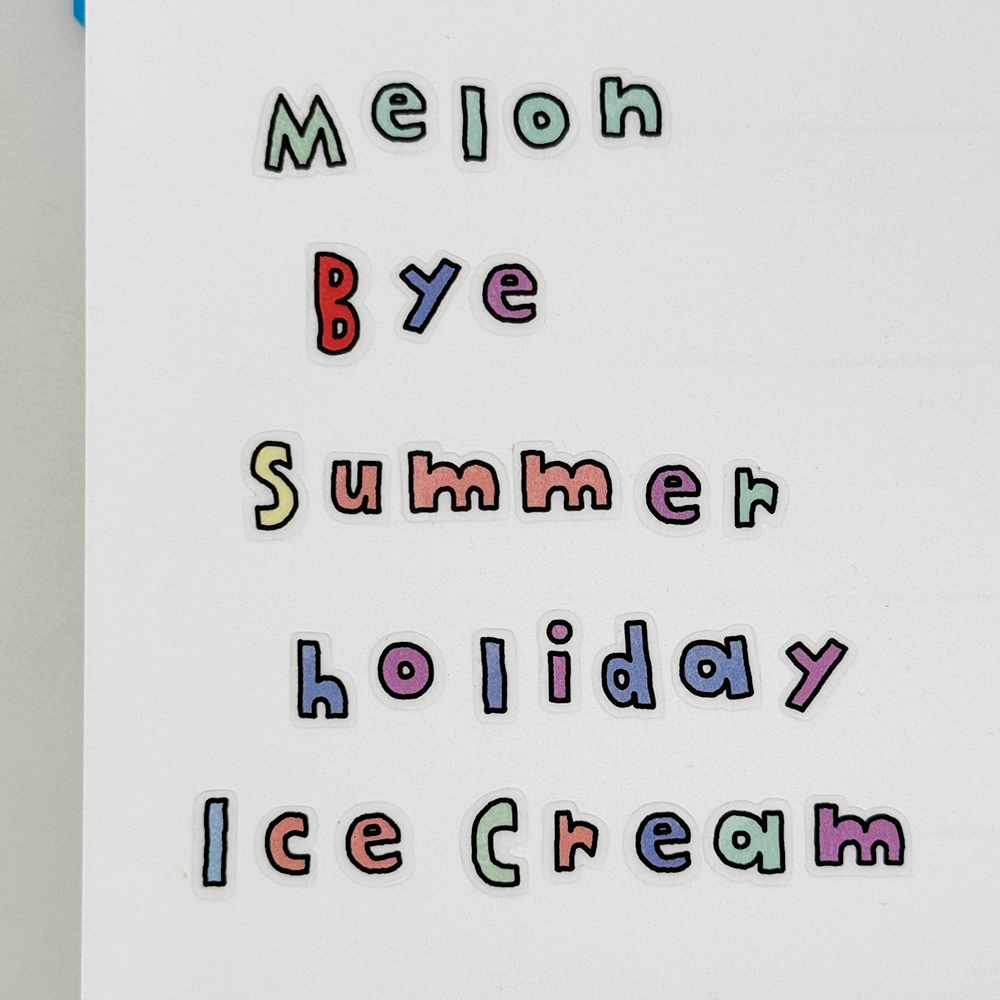 Melon
Bye
Summer
holiday
Ice Cream